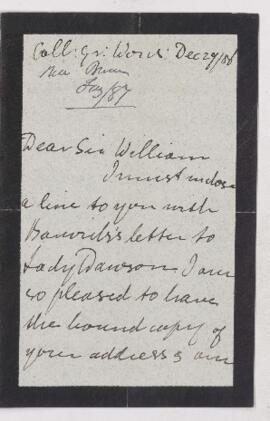 Coll: Gr: Word: Dec 29/86
Dear Sir William
I must enclose
a line to you with
letter to
Lady Dawson I am
so pleased to have
the bound copy of
your address & am